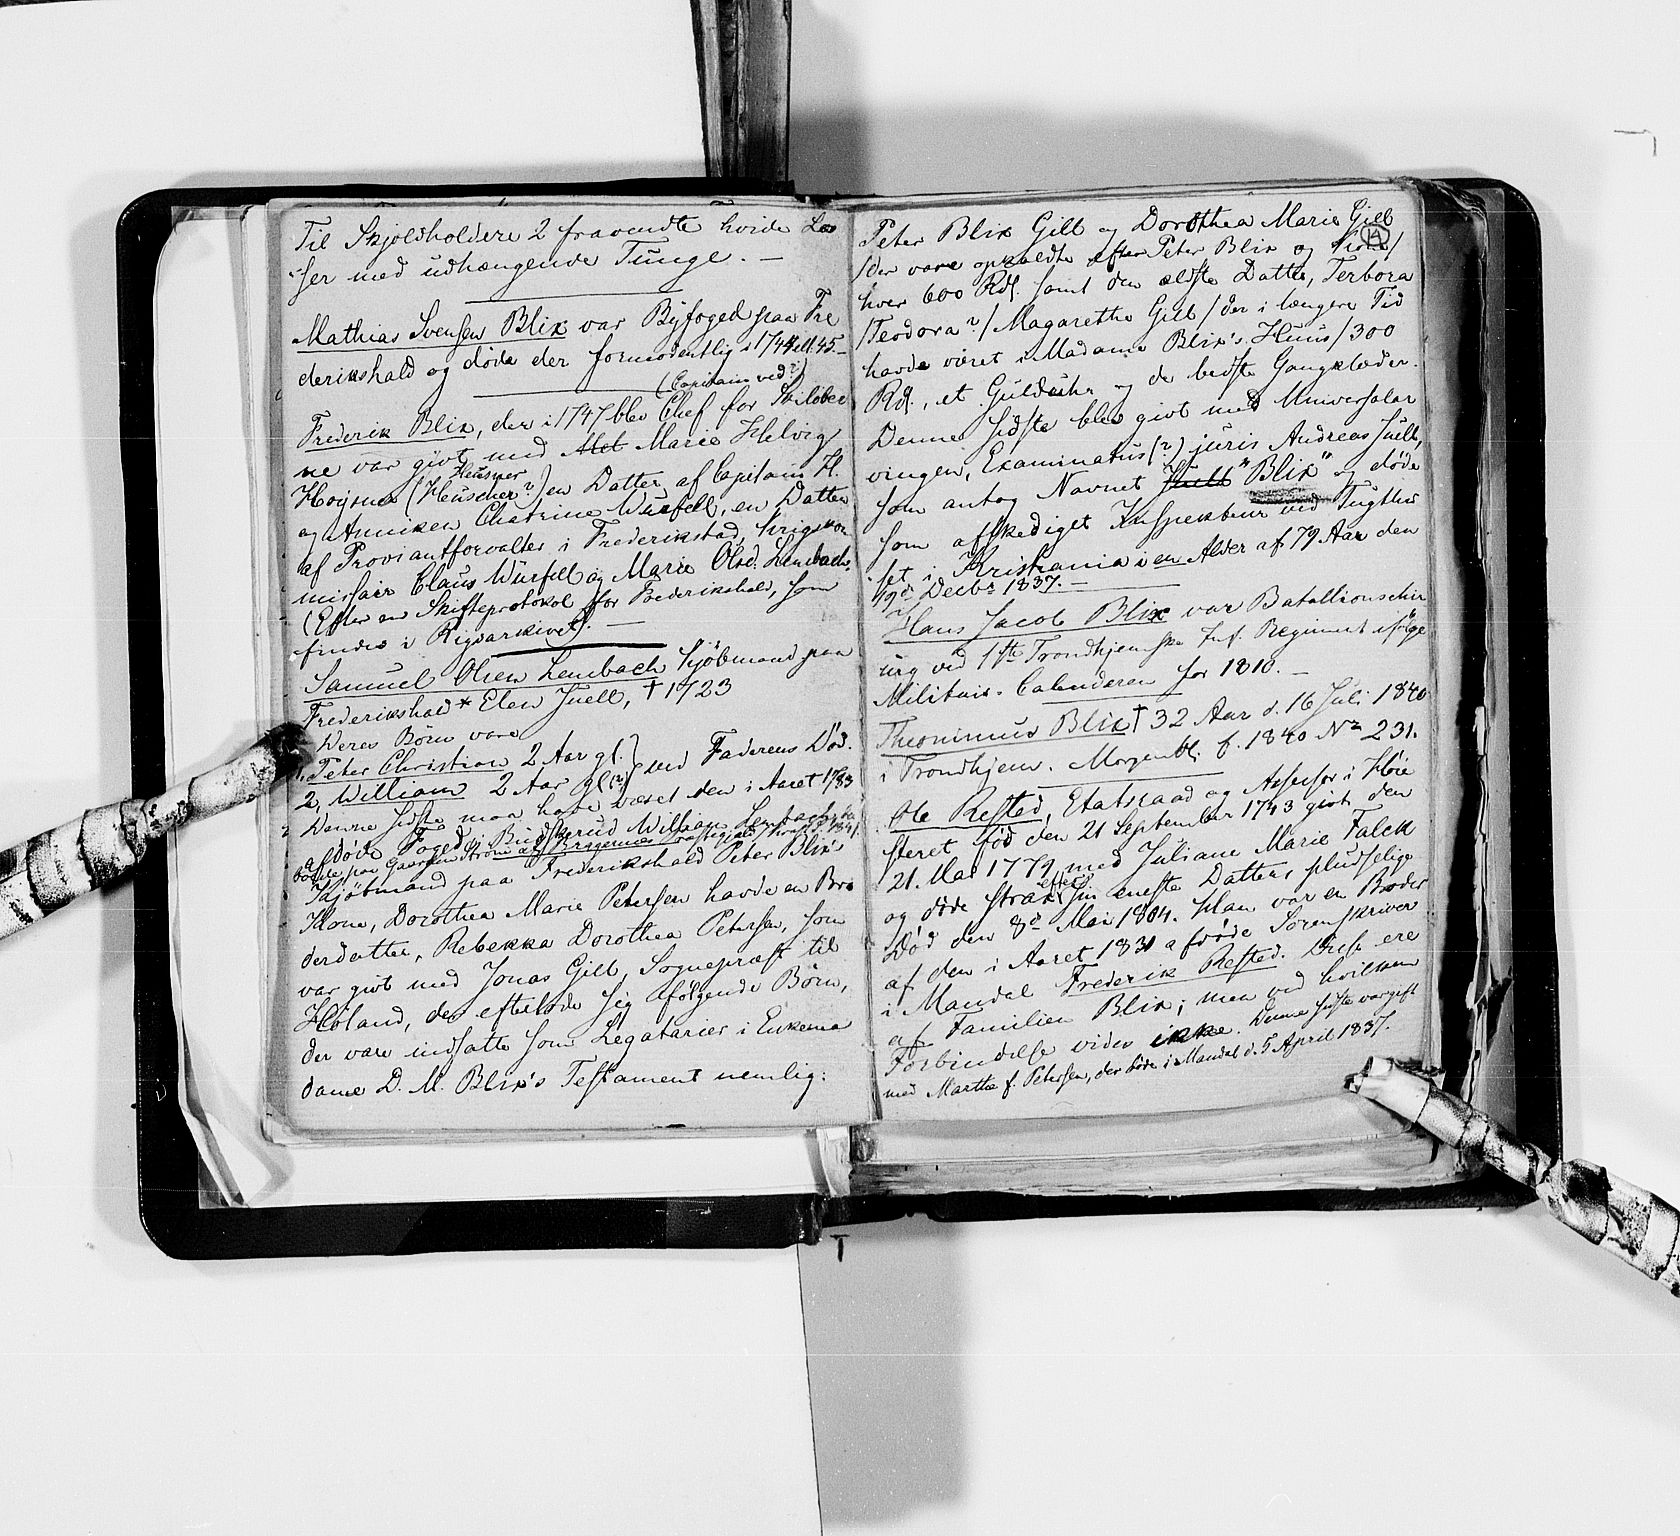 Til Skjoldholdere 2 fravendte hvide Løs
ser med udhængende Tunge. —
Mathias Svensen Blix var Byfoged paa Fre
derikshald og døde der formodentlig i 1744 ell. 45. —
(Capitain ved?)
Frederik Blix, der i 1747 blev Chef for Skiløber
ne var givt med Met Marie Helvig
Heusner
Hoysner (Heuscher?) en Datter af Capitain H.
og Anniken Chatrine Würfell, en Datter
af Proviantforvalter i Frederikstad, Krigskom
missair Claus Würfell og Marie Olsd. Lembach.
(Efter en Skifteprotokol for Frederikshald, som
findes i Rigsarkivet). —
Samuel Olsen Lembach Kjöbmand paa
Frederikshald * Elen Juell, † 1723
Deres Børn vare
1, Peter Christian 2 Aar gl.
2, William 2 Aar gl (?) } ved Faderens Död.
Denne sidste maa have været den i Aaret 1783
afdöde Foged i Buskerud William Lembach,
boede paa Gaarden Ström af Bragernes
Kjøbmand paa Frederikshald Peter Blix's
Kone, Dorothea Marie Petersen havde en Bro
derdatter, Rebekka Dorothea Petersen, som
var givt med Jonas Gill, Sognepræst til
Höland, der efterlode sig afölgende Börn,
der vare indsatte som Legatarier i Enkema
dame D. M. Blix's Testament nemlig:
14
Peter Blix Gill og Dorothea Marie Gill
/der vare opkaldte efter Peter Blix og Kone/
hver 600 Rdl. samt den ældste Datter, Terbora
/Teodora?/ Magarethe Gill /der i længere Tid
havde været i Madame Blix's Huus/ 300
Rdl., et Guldwhr og de bedste Gangklæder.
Denne sidste blev givt med Universalar
vingen, Examinatus (?) juris Andreas Juell,
som antog Navnet Juell "Blix" og døde
som affskediget Inspekteur ved Tugthu
set i Kristiania i en Alder af 79 Aar den
19de Decbr 1837. —
Hans Jacob Blix var Bataillonschir
urg ved 1ste Trondhjemske Inf. Regiment ifölge
Militair-Calenderen for 1810. —
Theonimus Blix † 32 Aar d. 16 Juli 1840
i Trondhjem. Morgenbl. f. 1840 No 231.
Ole Refsted, Etatsraad og Assessor i Höie
steret född den 21 September 1743 givt den
21. Mai 1779 med Juliane Marie Falck
og døde strax efter sin eneste Datters pludselige
Död den 8de Mai 1804. Han var en Broder
af den i Aaret 1831 afdøde Sorenskriver
i Mandal Frederik Refsted. Disse ere
af Familien Blix; men ved hvilken
Forbindelse vides ikke. Denne sidste var gift
med Marthe f. Petersen, der døde i Mandal d. 5 April 1837.